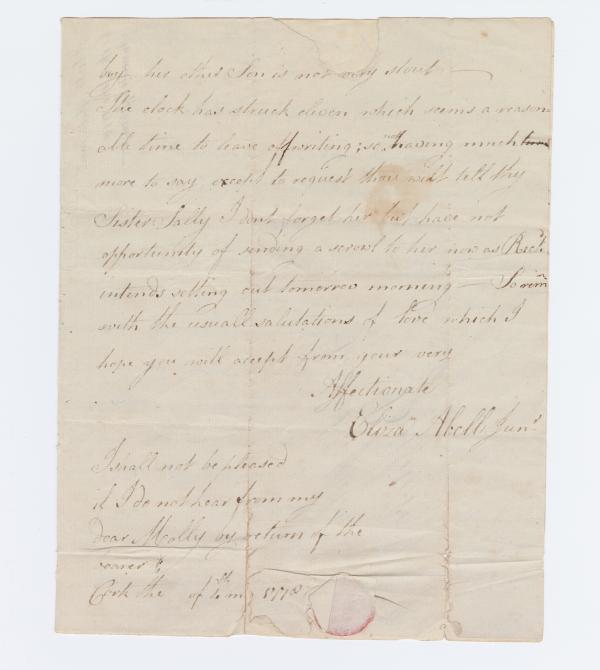 her other Son is not very stout —
The clock has struck eleven which seems a reason
able time to leave off writing; so not having much time
more to say, except to request thou wilt tell thy
Sister Sally I dont forget her but have not
opportunity of sending a scrowl to her now as Richd
intends setting out tomorrow morning — So
with the usuall salutations of love which I
hope you will accept from your very
Affectionate
Eliza Abell Junr
I shall not be pleased
if I do not hear from my
dear Molly by return of the
bearer
Cork the of mo 1778